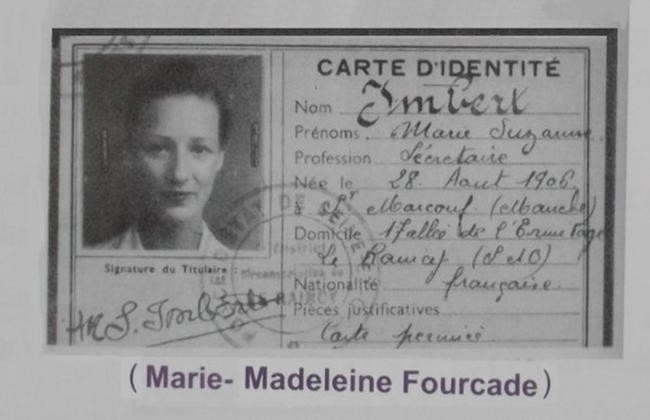 CARTE D'IDENTITÉ
Nom Imbert
Prénoms Marie Suzanne
Profession Sécretaire
Née le 28 Aout 1906
à St Marcouf (Manche)
Domicile 17 allée de l'Ermitage
Le Raincy (S et O)
Nationalité française
Pièces justificatives
Carte
Signature du Titulaire :
M S. Imbert
(Marie- Madeleine Fourcade)